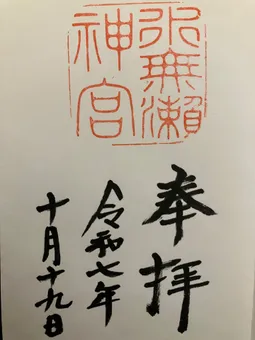 水無瀬
神宮
奉拝
令和七年
十月十九日